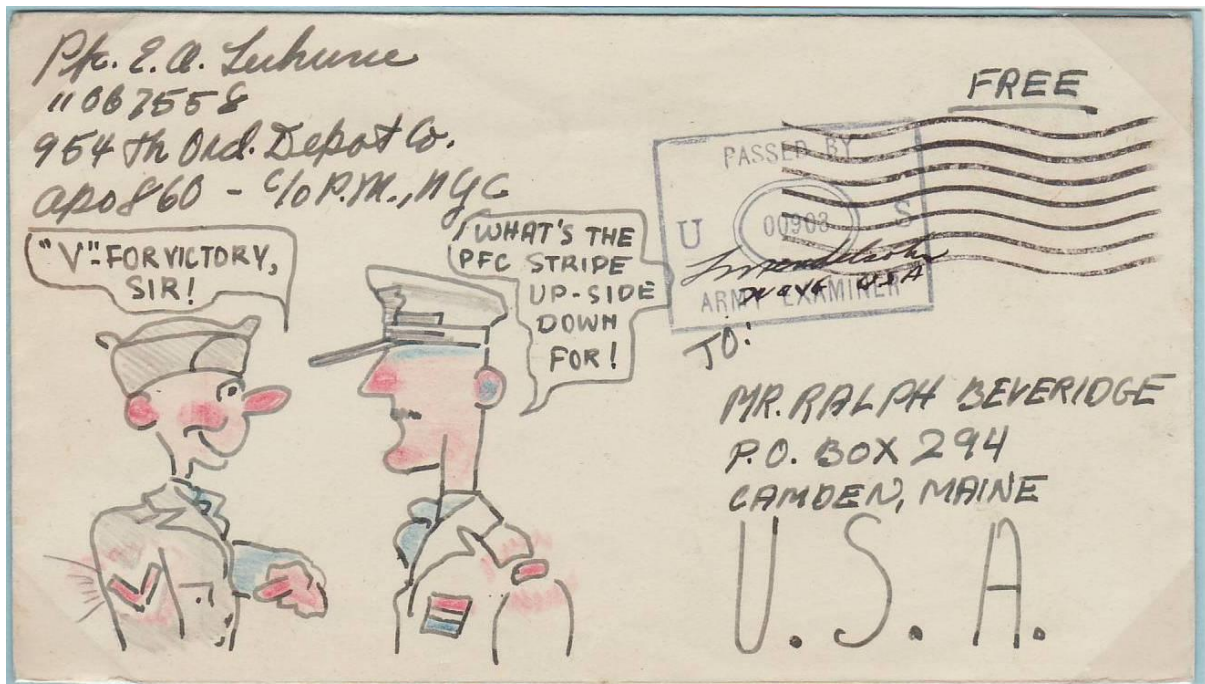 Pfc. E.A.
11067558
954th Ord. Depot Co.
APO 860 - c/o P.M., NYC
FREE
PASSED BY
U 00903 S
U S A
ARMY EXAMINER
"V"- FOR VICTORY,
SIR!
WHAT'S THE
PFC STRIPE
UP-SIDE
DOWN
FOR!
TO:
MR. RALPH BEVERIDGE
P.O. BOX 294
CAMDEN, MAINE
U.S.A.